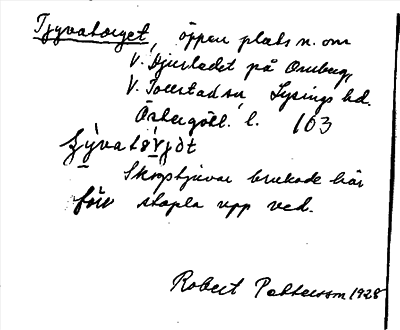 Tjyvatorget, öppen plats n. om
V. Djurledet på Omberg,
V. Tollstad sn Lysings hd.
Östergötl. l. 103
Skogstjuvar brukade här
förr stapla upp ved.
Robert Pettersson 1928